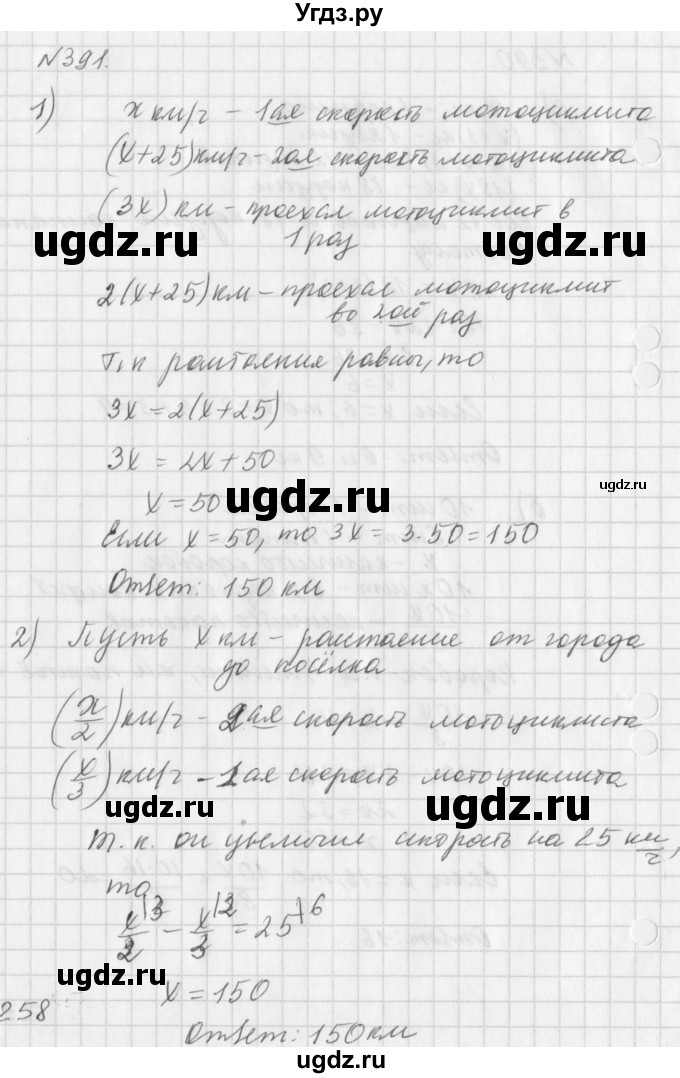 Угдз.ру
№391.
1) x км/ч – 1ая скорость мотоциклиста
(x+25) км/ч – 2ая скорость мотоциклиста
(3x) км – проехал мотоциклист в
1 раз
ugdz.ru ugdz.ru
2(x+25) км – проехал мотоциклист
во 2ой раз
Т.к расстояния равны, то
3x = 2(x+25)
3x = 2x + 50
x = 50
ugdz.ru ugdz.ru
Если x = 50, то 3x = 3·50 = 150
Ответ: 150 км
2) Пусть x км – расстояние от города
до посёлка
(x/2) км/ч – 2ая скорость мотоциклиста
ugdz.ru
(x/3) км/ч – 1ая скорость мотоциклиста
ugdz.ru ugdz.ru
т.к. он увеличил скорость на 25 км/ч,
то
x/2 |3 – x/3 |2 = 25 |6
ugdz.ru ugdz.ru
x = 150
258
Ответ: 150 км
ugdz.ru